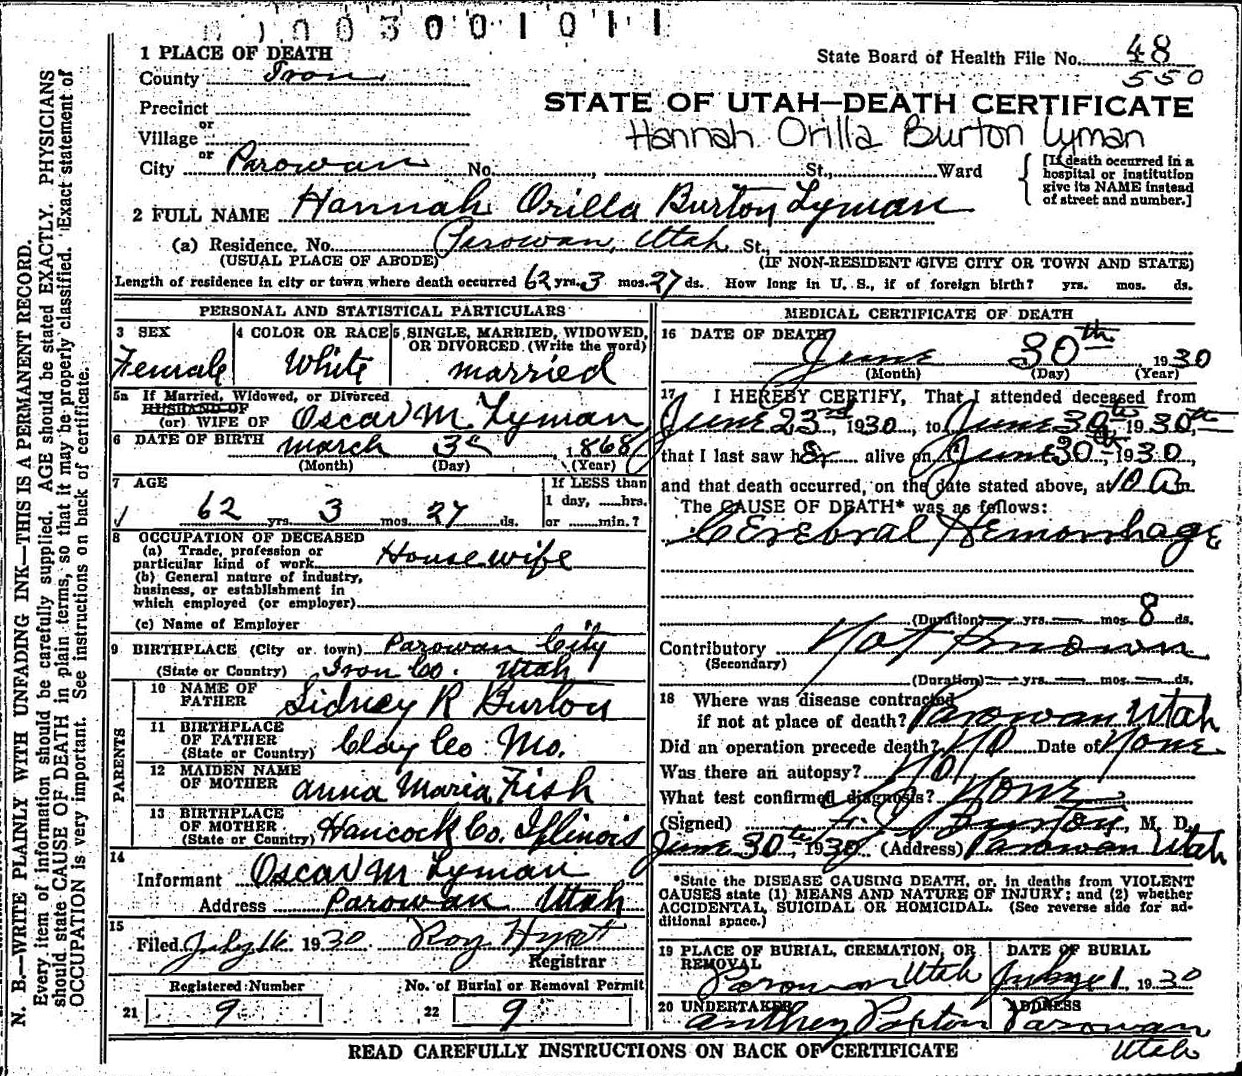 0 0 3 0 0 1 0 1 1
1 PLACE OF DEATH
County Iron
State Board of Health File No. 48
550
Precinct
or
Village
or
City Parowan No. , St., Ward
STATE OF UTAH—DEATH CERTIFICATE
Hannah Orilla Burton Lyman
[If death occurred in a
hospital or institution
give its NAME instead
of street and number.]
2 FULL NAME Hannah Orilla Burton Lyman
(a) Residence. No. Parowan, Utah St.,
(USUAL PLACE OF ABODE) (IF NON-RESIDENT GIVE CITY OR TOWN AND STATE)
Length of residence in city or town where death occurred 62 yrs. 3 mos. 27 ds. How long in U. S., if of foreign birth? yrs. mos. ds.
PERSONAL AND STATISTICAL PARTICULARS
3 SEX
Female
4 COLOR OR RACE
White
5 SINGLE, MARRIED, WIDOWED,
OR DIVORCED (Write the word)
married
5a If Married, Widowed, or Divorced
HUSBAND OF
(or) WIFE OF Oscar M Lyman
6 DATE OF BIRTH March 3rd, 1868
(Month) (Day) (Year)
7 AGE
62 yrs. 3 mos. 27 ds.
If LESS than
1 day, hrs.
or min.?
8 OCCUPATION OF DECEASED
(a) Trade, profession or
particular kind of work Housewife
(b) General nature of industry,
business, or establishment in
which employed (or employer)
(c) Name of Employer
9 BIRTHPLACE (City or town) Parowan City
(State or Country) Iron Co. Utah
PARENTS
10 NAME OF
FATHER Sidney R Burton
11 BIRTHPLACE
OF FATHER
(State or Country) Clay Co. Mo.
12 MAIDEN NAME
OF MOTHER Anna Maria Fish
13 BIRTHPLACE
OF MOTHER
(State or Country) Hancock Co. Illinois
14
Informant Oscar M Lyman
Address Parowan Utah
15
Filed July 16 1930 Roy
Registrar
Registered Number
21 9
No. of Burial or Removal Permit
22 9
MEDICAL CERTIFICATE OF DEATH
16 DATE OF DEATH
June 30th 1930
(Month) (Day) (Year)
17 I HEREBY CERTIFY, That I attended deceased from
June 23rd, 1930, to June 30th 1930,
that I last saw her alive on June 30th, 1930
and that death occurred, on the date stated above, at 10 A m.
The CAUSE OF DEATH* was as follows:
Cerebral Hemorrhage
(Duration) yrs. mos. 8 ds.
Contributory Not Known
(Secondary)
(Duration) yrs. mos. ds.
18 Where was disease contracted
if not at place of death? Parowan Utah
Did an operation precede death? No Date of None
Was there an autopsy? No
What test confirmed diagnosis? None
(Signed) Burton, M. D.
June 30th, 1930 (Address) Parowan Utah
*State the DISEASE CAUSING DEATH, or, in deaths from VIOLENT
CAUSES state (1) MEANS AND NATURE OF INJURY; and (2) whether
ACCIDENTAL, SUICIDAL OR HOMICIDAL. (See reverse side for ad-
ditional space.)
19 PLACE OF BURIAL, CREMATION, OR
REMOVAL
Parowan Utah
DATE OF BURIAL
July 1, 1930
20 UNDERTAKER
Anthny Paxton
ADDRESS
Parowan
Utah
READ CAREFULLY INSTRUCTIONS ON BACK OF CERTIFICATE
N. B.—WRITE PLAINLY WITH UNFADING INK—THIS IS A PERMANENT RECORD.
Every item of information should be carefully supplied. AGE should be stated EXACTLY. PHYSICIANS
should state CAUSE OF DEATH in plain terms, so that it may be properly classified. Exact statement of
OCCUPATION is very important. See instructions on back of certificate.